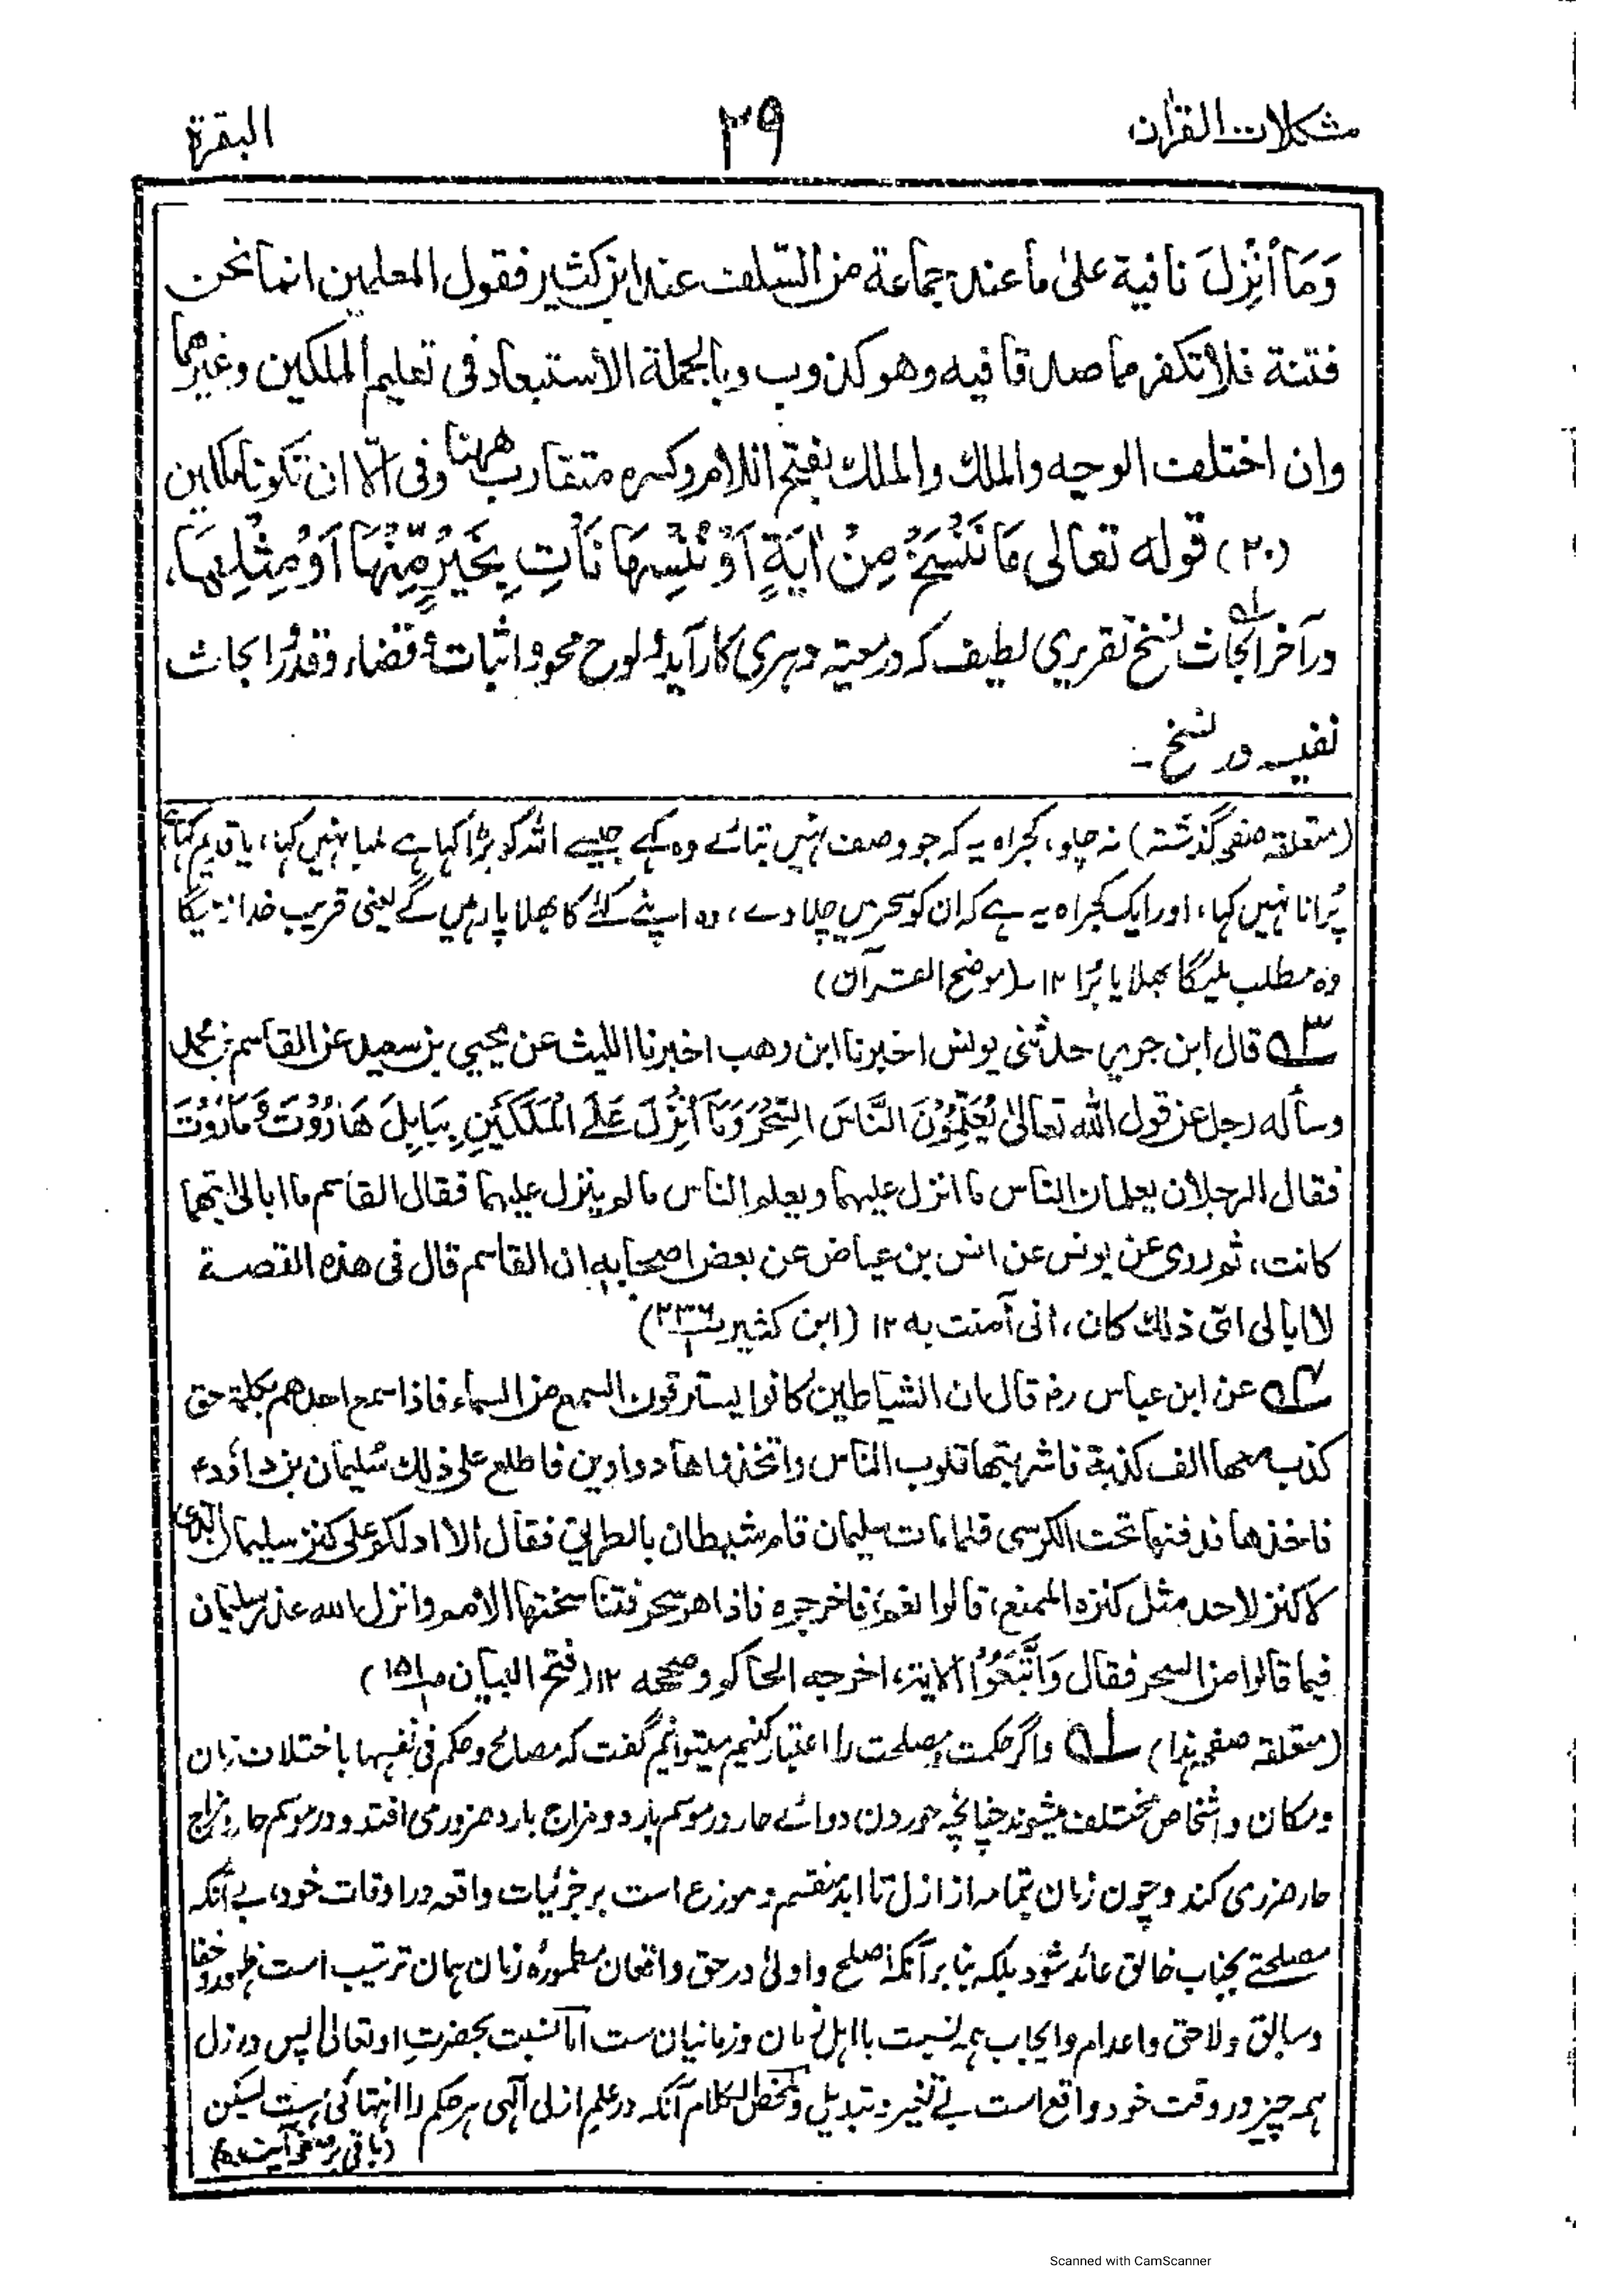 مشکلات القرآن
٢٩
البقرة
وَمَا أُنْزِلَ نافية علىٰ ما عند جماعة من السّلف عند ابن كثير فقول المعلمين انما نحن
فتنة فلا تكفر مما صدقا فيه وهو كذوب وبالجملة الاستبعاد فى تعليم الملكين وغيرهما
وان اختلف الوجه والملك والملك بفتح اللام وكسره متقارب ههنا وفى الّا ان تكونا ملكين
(٢٠) قوله تعالى مَا نَنْسَخْ مِنْ اٰيَةٍ اَوْ نُنْسِهَا نَأْتِ بِخَيْرٍ مِّنْهَا اَوْ مِثْلِهَا،
درآخر ابحاث نسخ تقریری لطیف کہ در معیتہ دہری کار آید و لوح محو و اثبات و قضاء و قدر ابحاث
نفیسہ در نسخ ـ
(متعلقہ صفحہ گذشتہ) نہ چلو، کجراہ یہ کہ جو وصف نہیں بتائے وہ کہے جیسے اللہ کو بڑا کہا ہے لمبا نہیں کہا، یا قدیم کہا ہے،
پُرانا نہیں کہا، اور ایک کجراہ یہ ہے کہ ان کو سحر میں چلا دے، وہ اپنے کئے کا بھلا پا رہیں گے یعنی قریب خدا نہ
وہ مطلب ملیگا بھلا یا بُرا ١٢ ـ (موضح القرآن)
٣ قال ابن جرير حدثنى يونس اخبرنا ابن وهب اخبرنا الليث عن يحيي بن سعيد عن القاسم بن محمد
وسأله رجل عن قول الله تعالىٰ يُعَلِّمُوْنَ النَّاسَ السِّحْرَ وَمَا أُنْزِلَ عَلَى الْمَلَكَيْنِ بِبَابِلَ هَارُوْتَ وَمَارُوْتَ
فقال الرجلان يعلمان الناس ما انزل عليهما ويعلم الناس ما لم ينزل عليهما فقال القاسم ما ابالى ايتهما
كانت، ثم روى عن يونس عن انس بن عياض عن بعض اصحابه ان القاسم قال فى هذه القصة
لا ابالى اىّ ذلك كان، انى آمنت به ١٢ (ابن كثير
٤ عن ابن عباس رض قال ان الشياطين كانوا يسترقون السمع من السماء فاذا سمع احدهم بكلمة حق
كذب معها الف كذبة فاشربتها قلوب الناس واتخذوها دواوين فاطلع على ذلك سليمان بن داؤد ع
فاخذها فدفنها تحت الكرسى فلما مات سليمان قام شيطان بالطريق فقال الا ادلكم على كنز سليمان الذى
لا كنز لاحد مثل كنزه الممنع، قالوا نعم، فاخرجوه فاذا هو سحر فتناسختها الامم وانزل الله عذر سليمان
فيما قالوا من السحر فقال وَاتَّبَعُوْا الاية، اخرجه الحاكم وصححه ١٢ (فتح البيان
(متعلقہ صفحہ ہذا) ١ واگر حکمت و مصلحت را اعتبار کنیم میتوانیم گفت کہ مصالح و حکم فی نفسہا باختلاف زمان
و مکان و اشخاص مختلف میشوند چنانچہ خوردن دوائے حار در موسم بارد و مزاج بارد ضروری افتد و در موسم حار و مزاج
حار ضرر می کند و چون زمان بتمامہ از ازل تا ابد منقسم و موزع است بر جزئیات واقعہ در اوقات خود، بے آنکہ
مصلحتے بجناب خالق عائد شود بلکہ بنا بر آنکہ اصلح و اولیٰ در حق واقعان مطمورۂ زمان ہمان ترتیب است ظہور و خفا
و سابق و لاحق و اعدام و ایجاب ہمہ نسبت با اہل زمان و زمانیان ست اما نسبت بحضرت او تعالیٰ پس در ازل
ہمہ چیز در وقت خود واقع است بے تغیر و تبدیل و ملخص الکلام آنکہ در علم ازلی الٰہی ہر حکم را انتہائی ہست لیکن
(باقی بر صفحہ آئندہ)
Scanned with CamScanner